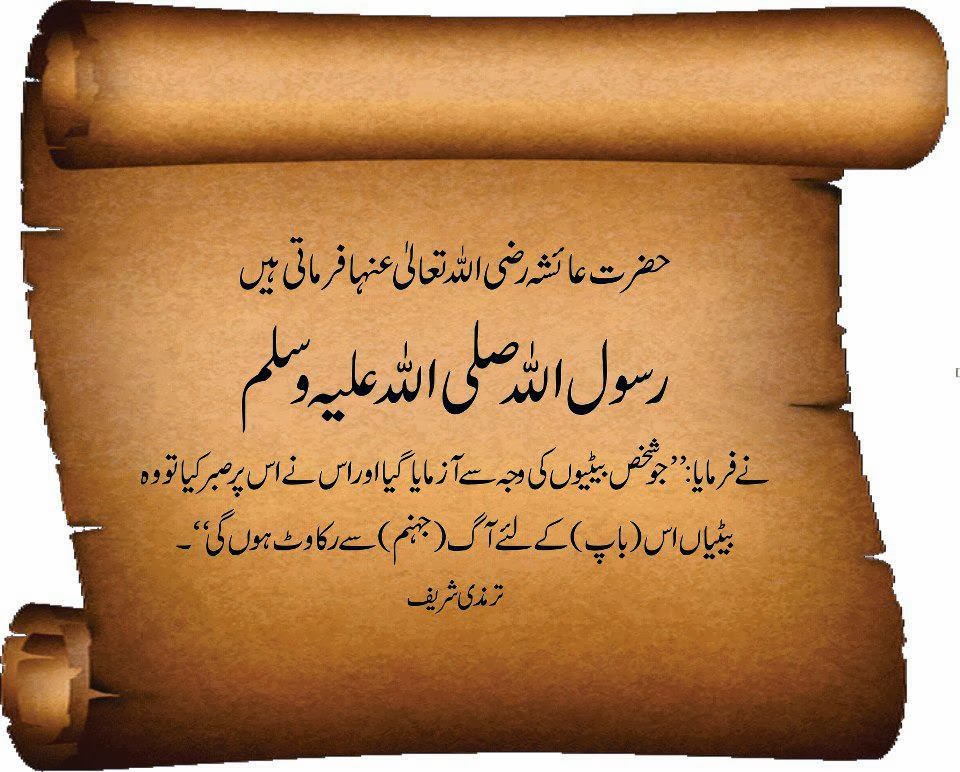 حضرت عائشہ رضی اللہ تعالیٰ عنہا فرماتی ہیں
رسول اللہ صلی اللہ علیہ وسلم
نے فرمایا: ’’جو شخص بیٹیوں کی وجہ سے آزمایا گیا اور اس نے اس پر صبر کیا تو وہ
بیٹیاں اس (باپ) کے لئے آگ (جہنم) سے رکاوٹ ہوں گی‘‘۔
ترمذی شریف